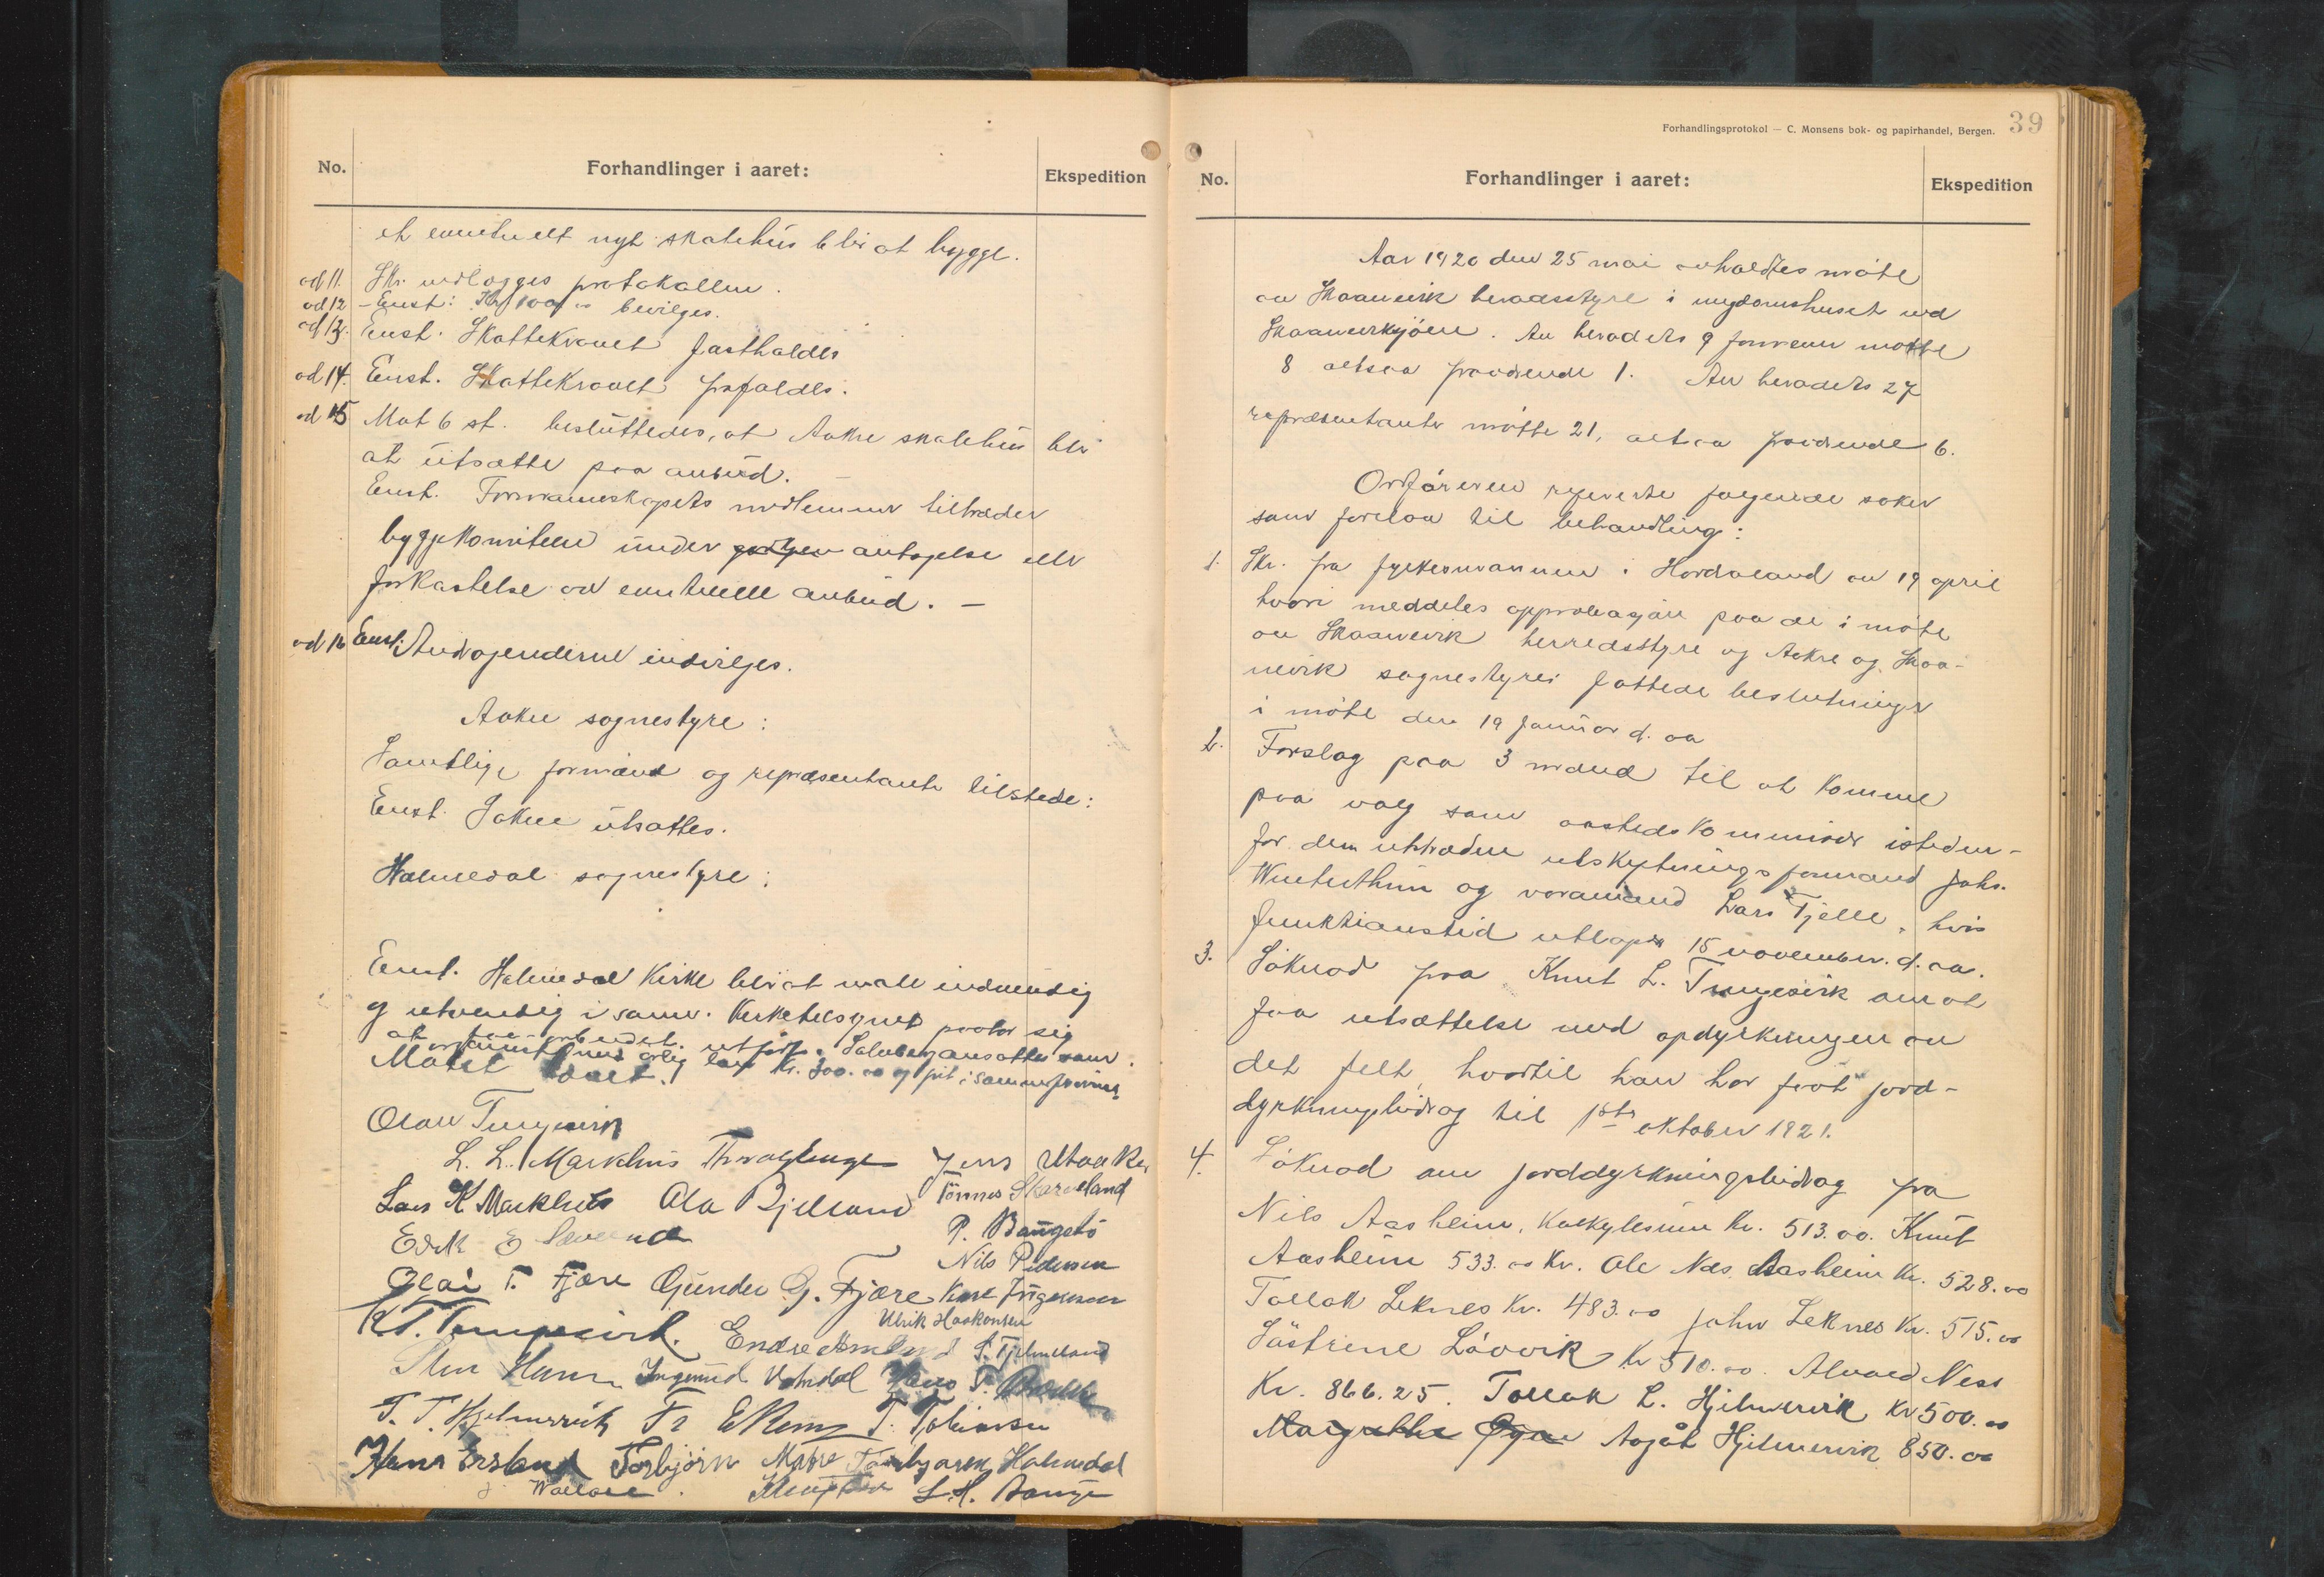 No.
Forhandlinger i aaret:
Ekspedition
et eventuelt nyt skolehus blir at bygge.
ad 11. Skr. vedlægges protokollen.
ad 12 - Enst: Kr 100,00 bevilges.
ad 13. Enst. Skattekravet fastholdes
ad 14. Enst. Skattekravet frafaldes.
ad 15 Mot 6 st. besluttedes, at Aakre skolehus blir
at utsætte paa anbud.
Enst. Formannskapets medlemmer tiltræder
byggekomiteen under antagelse eller
forkastelse av eventuelle anbud. —
ad 16 Enst: Andragenderne indvilges.
Aakre sognestyre:
Samtlige formænd og repræsentanter tilstede:
Enst. Saken utsættes.
Holmedal sognestyre:
Enst. Holmedal Kirke blir at male indvendig
og utvendig i somr. Kirketilsynet paatar sig
at faa arbeidet utført. ansættes som
organist med årlig løn Kr. 300.00
Møtet hævet.
Olav Tungesvik
L. L. Markhus Jens Utaaker
Lars K Markhus Ola Bjelland Tönnes Skaaeland
P. Baugstø
Nils Pedersen
Olai T. Fjære Gunder G. Fjære
K T. Tungesvik. Endre Ulrik Haakonsen
Ingmund Vahdal Hans
T. T. Hjelmervik Fr T. Tobiassen
Hans Ersland Torbjörn Matre Holmedal
L. H. Tange
Forhandlingsprotokol — C. Monsens bok- og papirhandel, Bergen. 39
No.
Forhandlinger i aaret:
Ekspedition
Aar 1920 den 25 mai avholdtes møte
av Skaanevik heradsstyre i ungdomshuset ved
Skaaneviksjøen. Av heradets 9 formenn møtte
8 altsaa fraværende 1. Av heradets 27
repræsentanter møtte 21, altsaa fraværende 6.
Ordføreren refererte følgende saker
som forelaa til behandling:
1. Skr. fra fylkesmannen i Hordaland av 19 april
hvori meddeles approbasjon paa de i møte
av Skaanevik herredsstyre og Aakre og Skaa-
nevik sognestyrer fattede beslutninger
i møte den 19 januar d. aa
2. Forslag paa 3 mænd til at komme
paa valg som aastedskommissær isteden-
for den uttrædne utskiftningsformand Johs.
Winterthun og varamand Lars Tjelle, hvis
funktionstid utløper 15 november. d. aa.
3. Søknad fra Knut L. Tungesvik om at
faa utsættelse med opdyrkningen av
det felt, hvortil han har faat jord-
dyrkningsbidrag til 1ste oktober 1921.
4. Søknad om jorddyrkningsbidrag fra
Nils Aasheim, Kalkylesum Kr. 513.00. Knut
Aasheim 533.00 Kr. Ole Næs Aasheim Kr. 528.00
Tollak Leknes Kr. 483.00 John Leknes Kr. 515.00
Søstrene Løvvik Kr 510.00. Alvard Ness
Kr. 866.25. Tollak L. Hjelmervik Kr 500.00
Margrethe Øyan Aagåt Hjelmervik 850.00